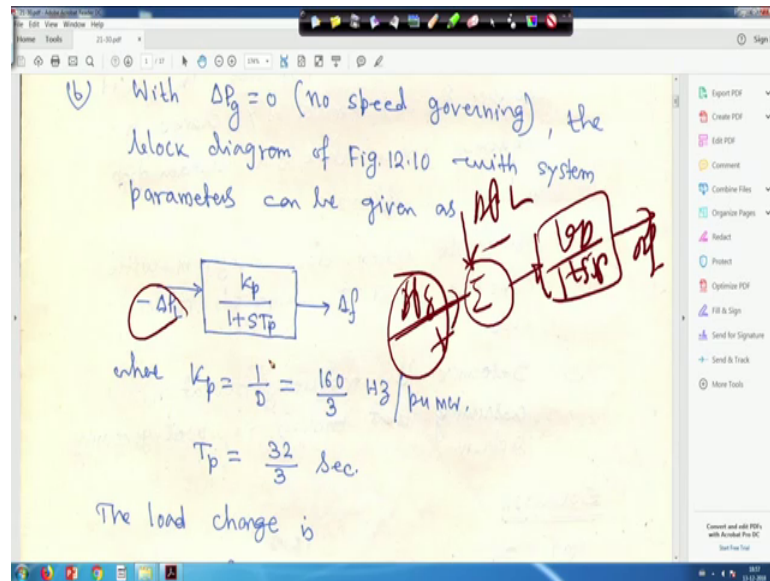 21-30.pdf - Adobe Acrobat Reader DC
File Edit View Window Help
Home Tools 21-30.pdf × Sign
1 / 17
(b) With ΔPg = 0 (no speed governing), the
block diagram of Fig. 12.10 with system
parameters can be given as
ΔPL
-ΔPL Kp / 1+STp Δf
ΔPg Σ Kp / 1+STp Δf
+ -
where Kp = 1/D = 160/3 Hz/pu MW.
Tp = 32/3 Sec.
The load change is
Export PDF
Create PDF
Edit PDF
Comment
Combine Files
Organize Pages
Redact
Protect
Optimize PDF
Fill & Sign
Send for Signature
Send & Track
More Tools
Convert and edit PDFs
with Acrobat Pro DC
Start Free Trial
18:57